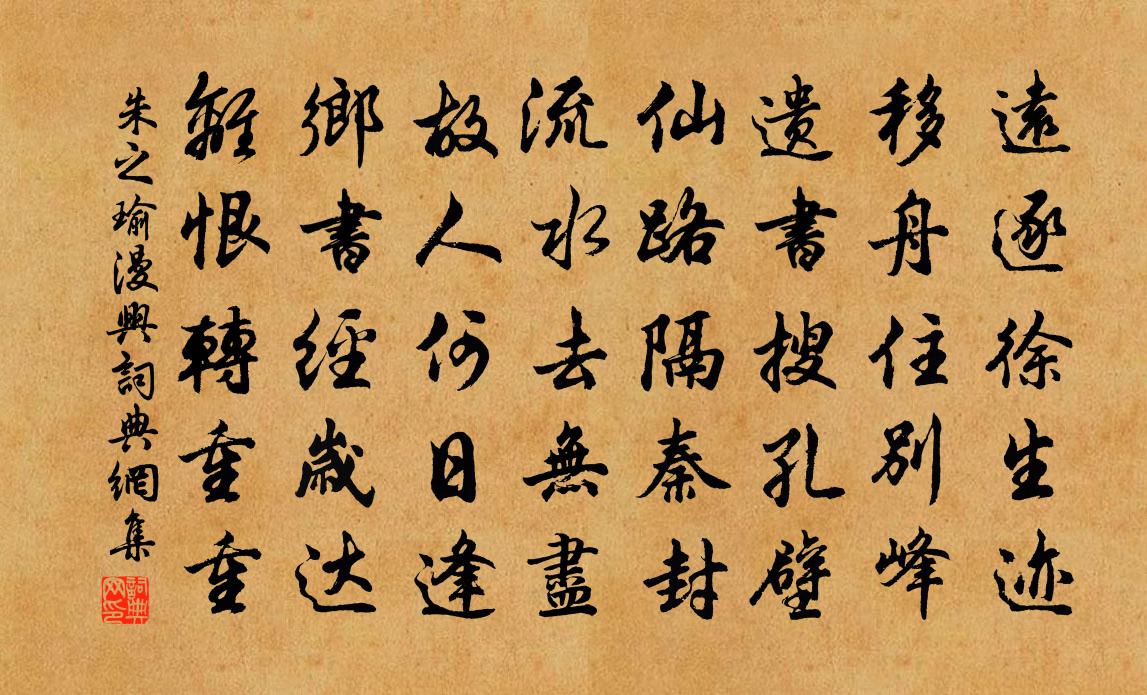 遠逐徐生迹
移舟住別峰
遗書搜孔壁
仙路隔秦封
流水去無盡
故人何日逢
鄉書經歲达
離恨轉重重
朱之瑜漫興詞典網集
詞典网印